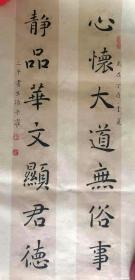 心懷大道無俗事
靜品華文顯君德